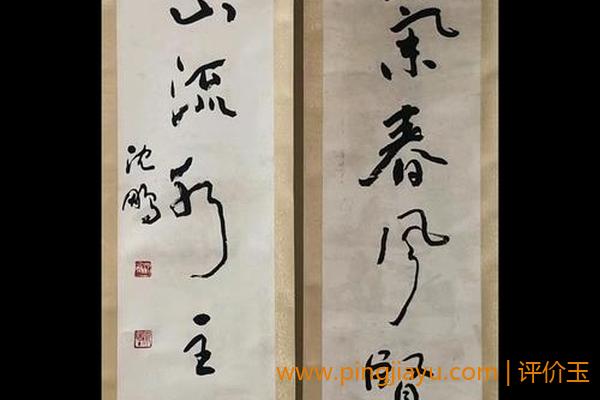 氣春风賢
山流水主
沈鵬
www.pingjiayu.com | 评价玉